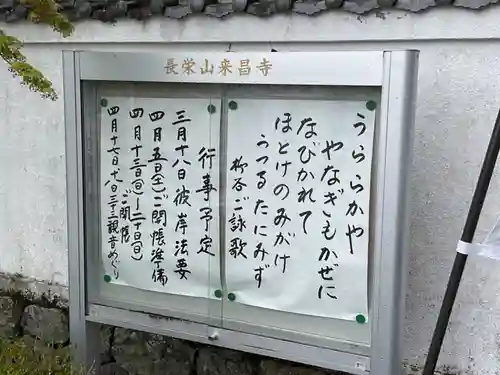 長栄山来昌寺
うららかや
やなぎもかぜに
なびかれて
ほとけのみかげ
うつるたにみず
柳谷ご詠歌
行事予定
三月十八日彼岸法要
四月五日(土)ご開帳準備
四月十三日(日)〜二十日(日)
ご開帳
四月十七日、十八日三十三観音めぐり